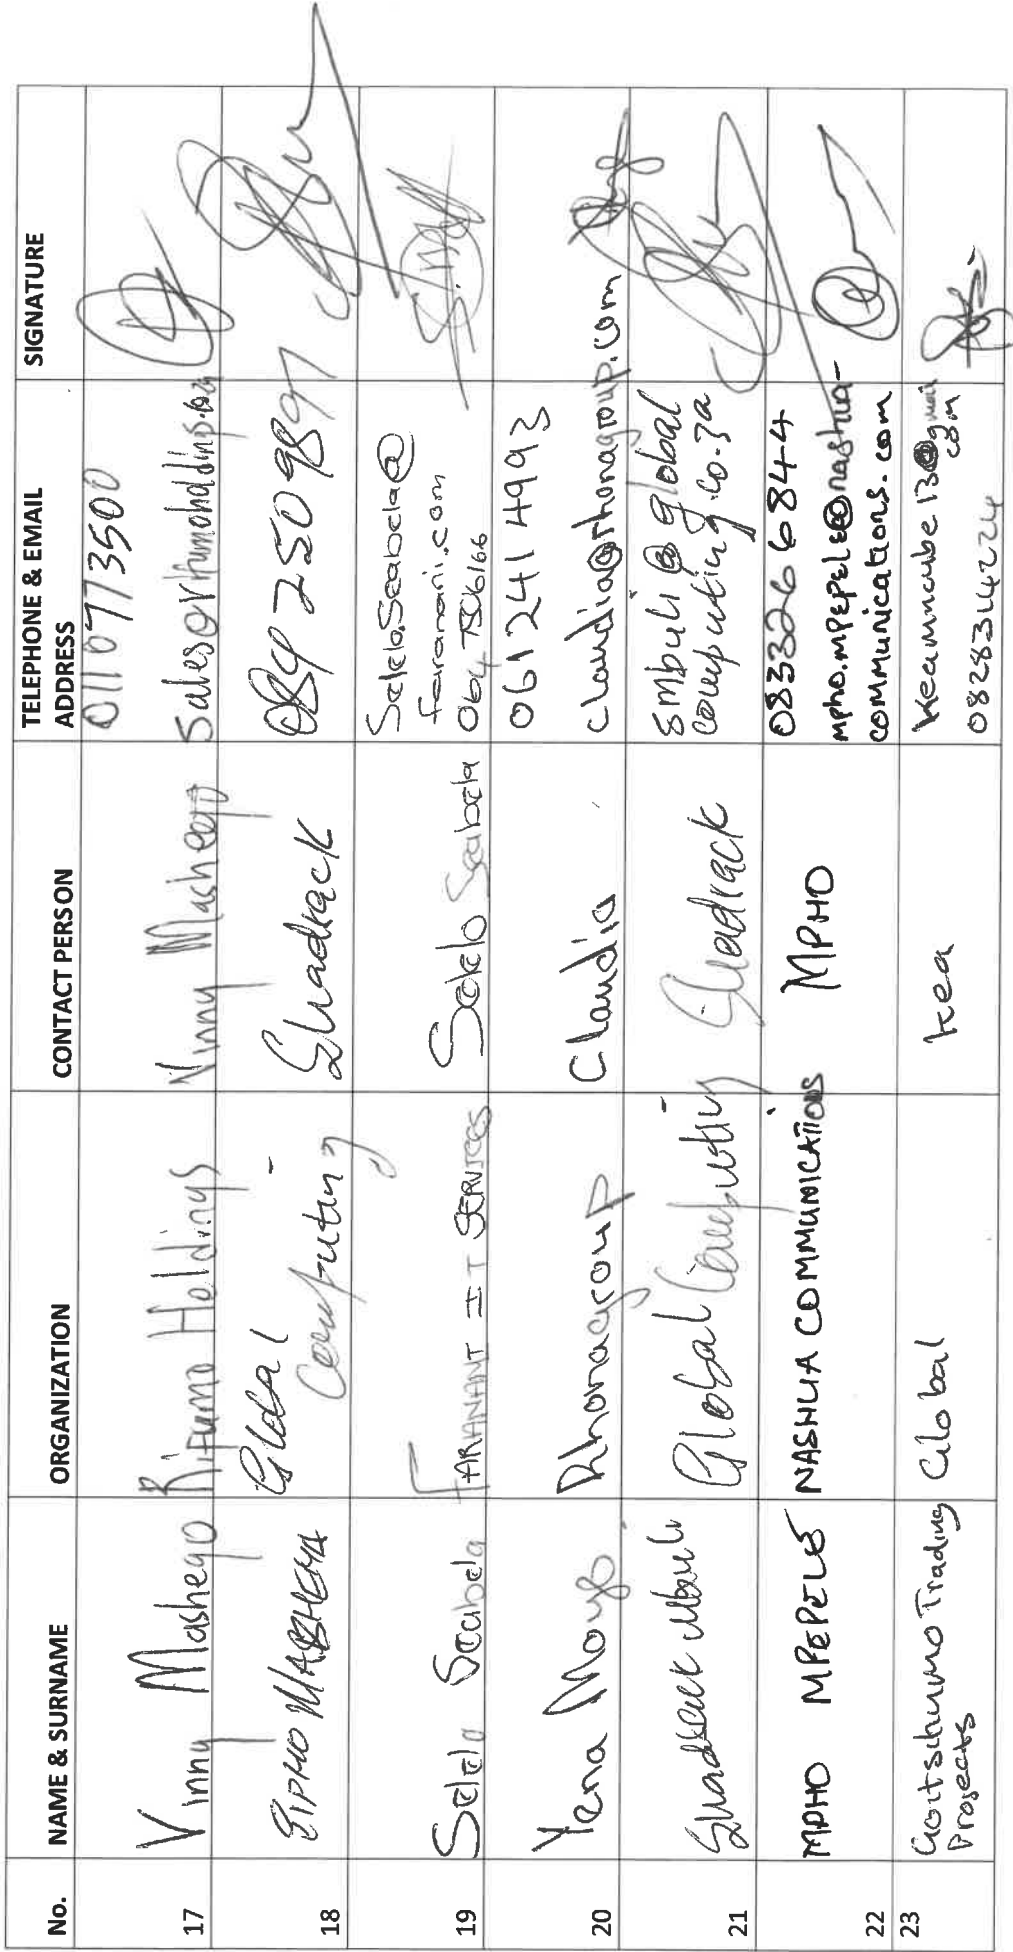 No. NAME & SURNAME ORGANIZATION CONTACT PERSON TELEPHONE & EMAIL ADDRESS SIGNATURE
17 Vinny Mashego Rifumo Holdings Vinny Mashego 0110773500
18 SIPHO Global Computing Shadrack 084 250 9897
19 Selelo Seabela FARANANI IT SERVICES Selelo Seabela Selelo.Seabela@
faranani.com
20 Yena Moyo Rhonagroup Claudia 061241 4993
claudia@rhonagroup.com
21 Shadrack Mbuli Global Computing Shadrack Smbuli@global
computing.co.za
22 MPHO MPEPELE NASHUA COMMUNICATIONS MPHO 0833266844
mpho.mpepele@nashua-
communications.com
23 Trading
Projects Global Kea